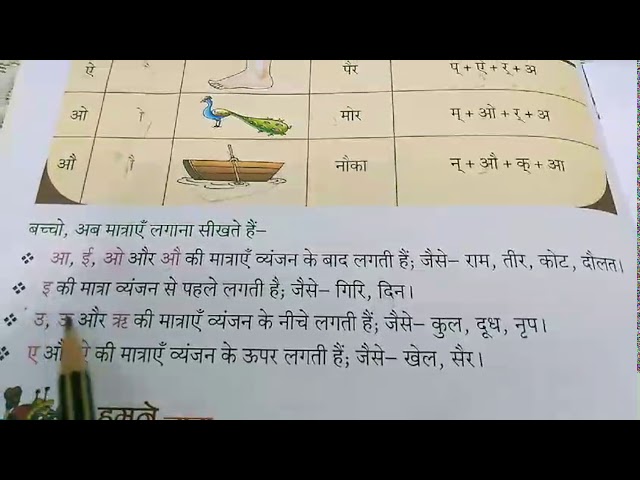 ऐ ै पैर प् + ऐ + र् + अ
ओ ो मोर म् + ओ + र् + अ
औ ौ नौका न् + औ + क् + आ
बच्चो, अब मात्राएँ लगाना सीखते हैं–
❖ आ, ई, ओ और औ की मात्राएँ व्यंजन के बाद लगती हैं; जैसे– राम, तीर, कोट, दौलत।
❖ इ की मात्रा व्यंजन से पहले लगती है; जैसे– गिरि, दिन।
❖ उ, ऊ और ऋ की मात्राएँ व्यंजन के नीचे लगती हैं; जैसे– कुल, दूध, नृप।
❖ ए की मात्राएँ व्यंजन के ऊपर लगती हैं; जैसे– खेल, सैर।
हमने